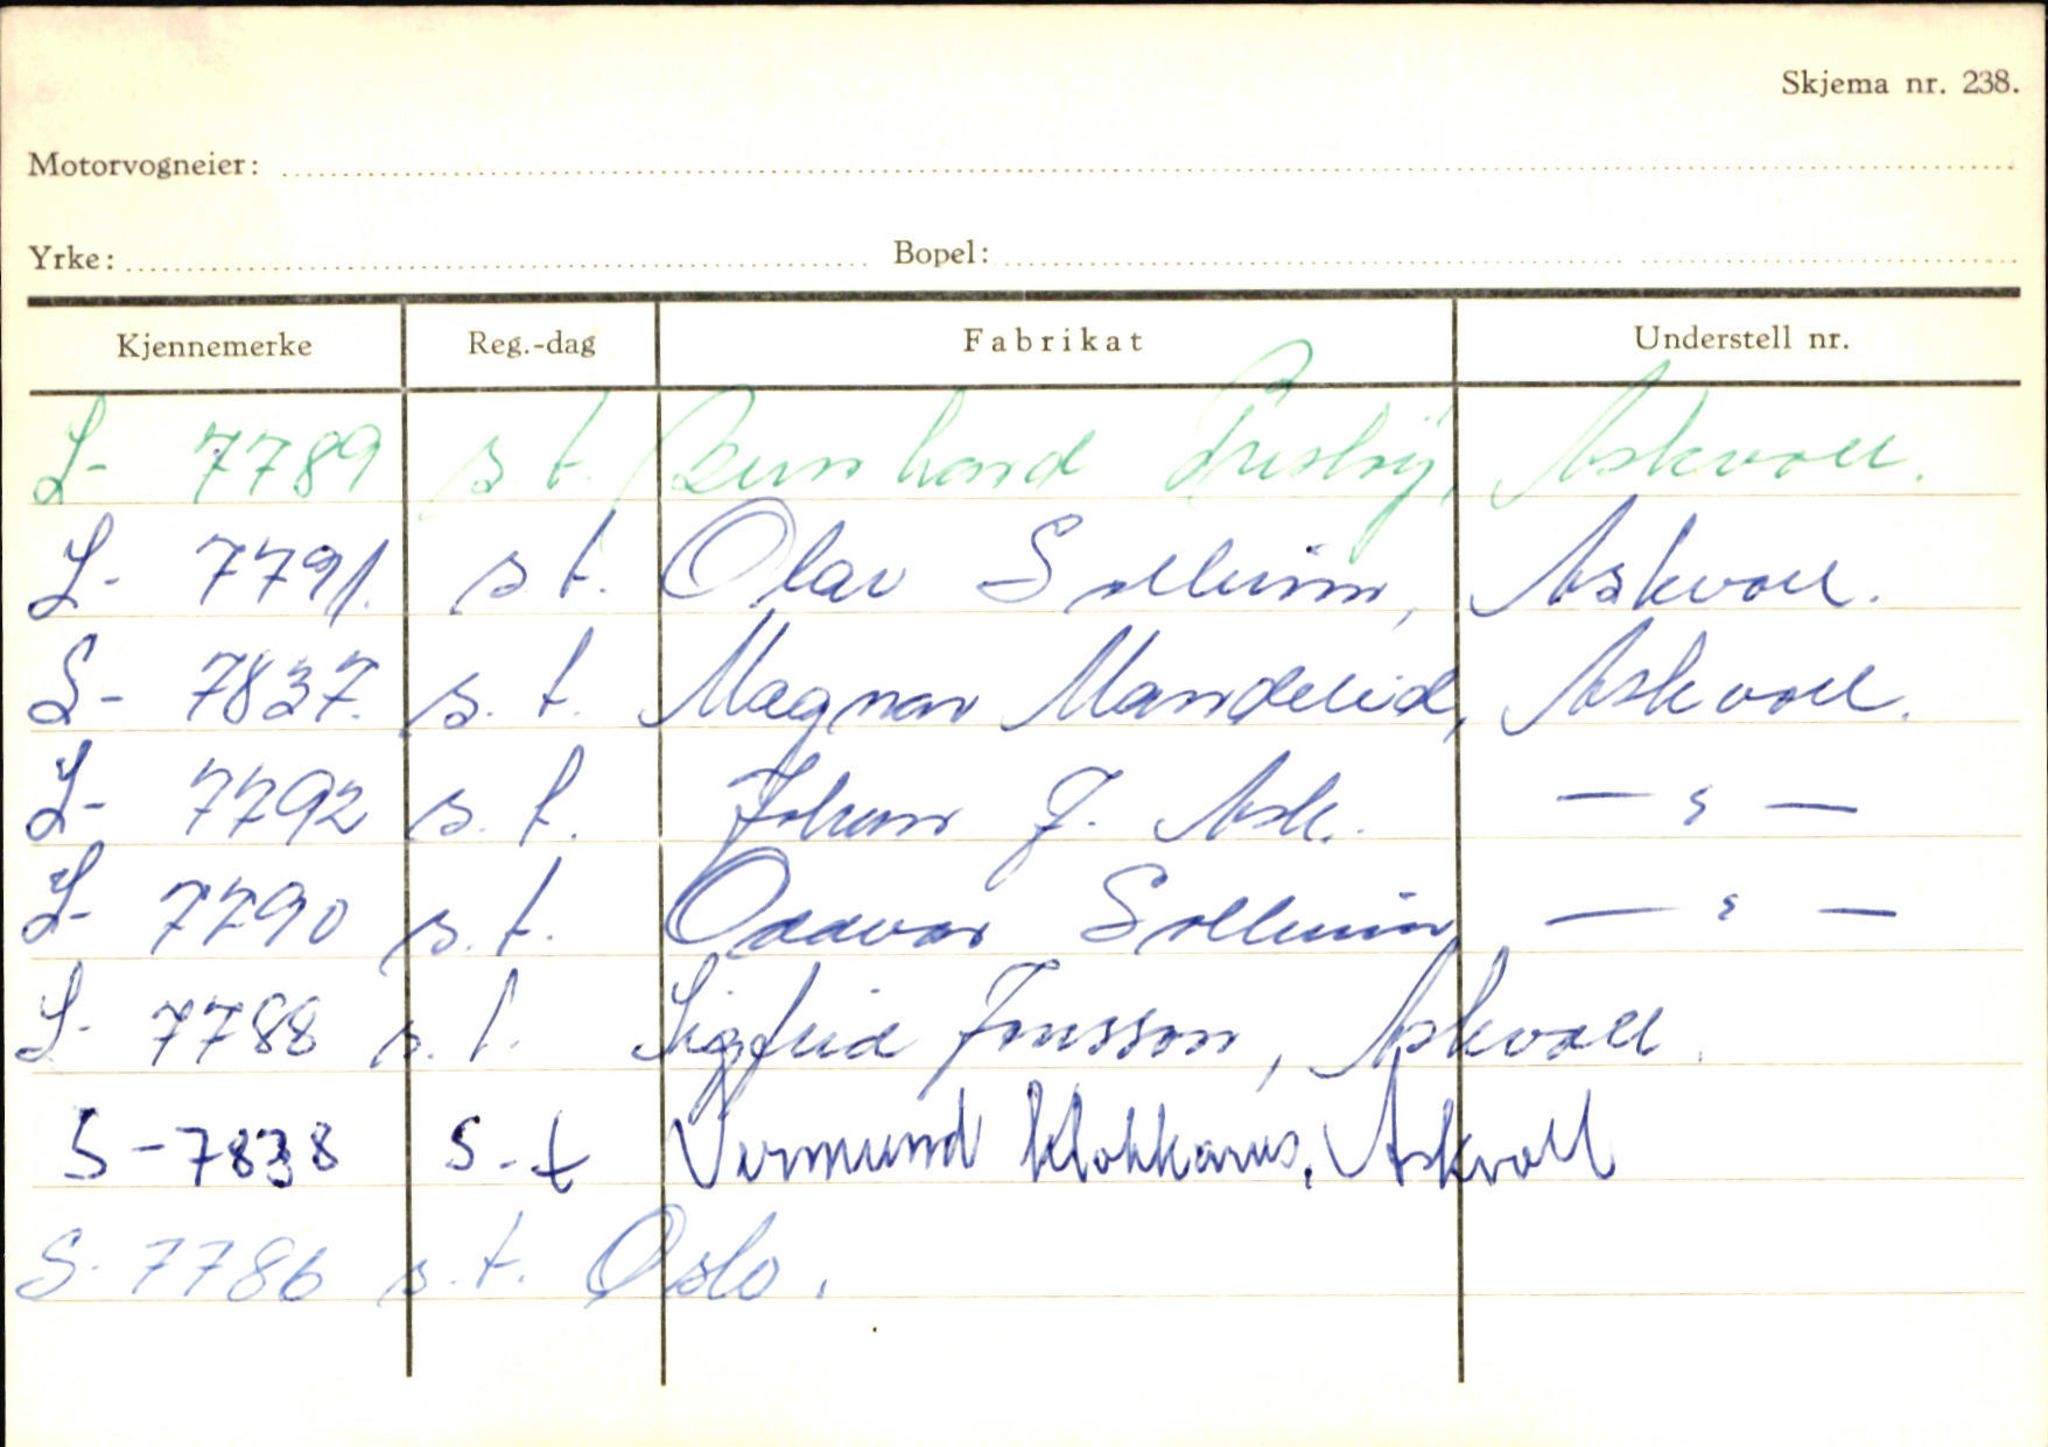 Skjema nr. 238.
Motorvogneier:
Yrke: Bopel:
Kjennemerke Reg.-dag Fabrikat Understell nr.
S- 7789 s.t. Bernhard Askvoll.
S- 7791. s.t. Olav Solheim, Askvoll.
S- 7837. s.t. Magnar Mandelid, Askvoll.
S- 7792 s.t. Johan J. Ask. — " —
S- 7790 s.t. Oddvar Solheim — " —
S- 7788 s.t. Sigfrid Jonsson, Askvoll.
S-7838 s-t Vermund Klokkarus, Askvoll
S-7786 s.t. Oslo.